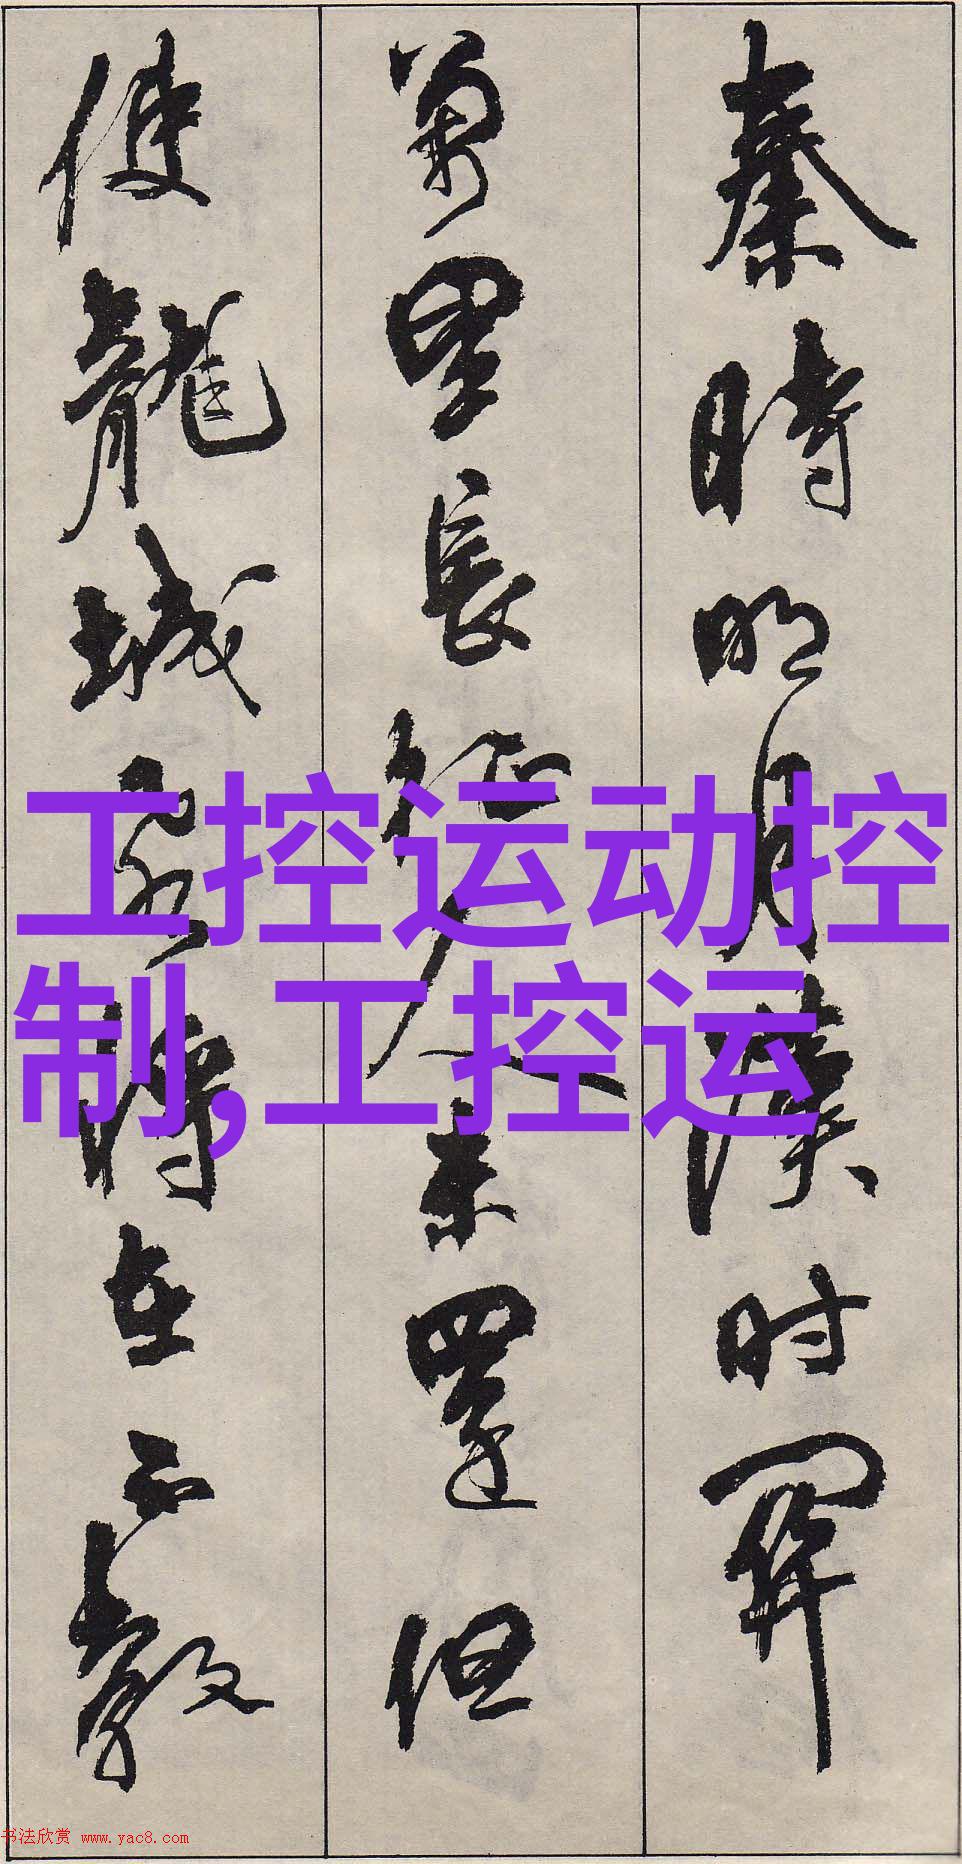 秦時明月漢时關
萬里長征人未還但
使龍城飛將在不教
工控运动控
制,工控运
书法欣赏 www.yac8.com